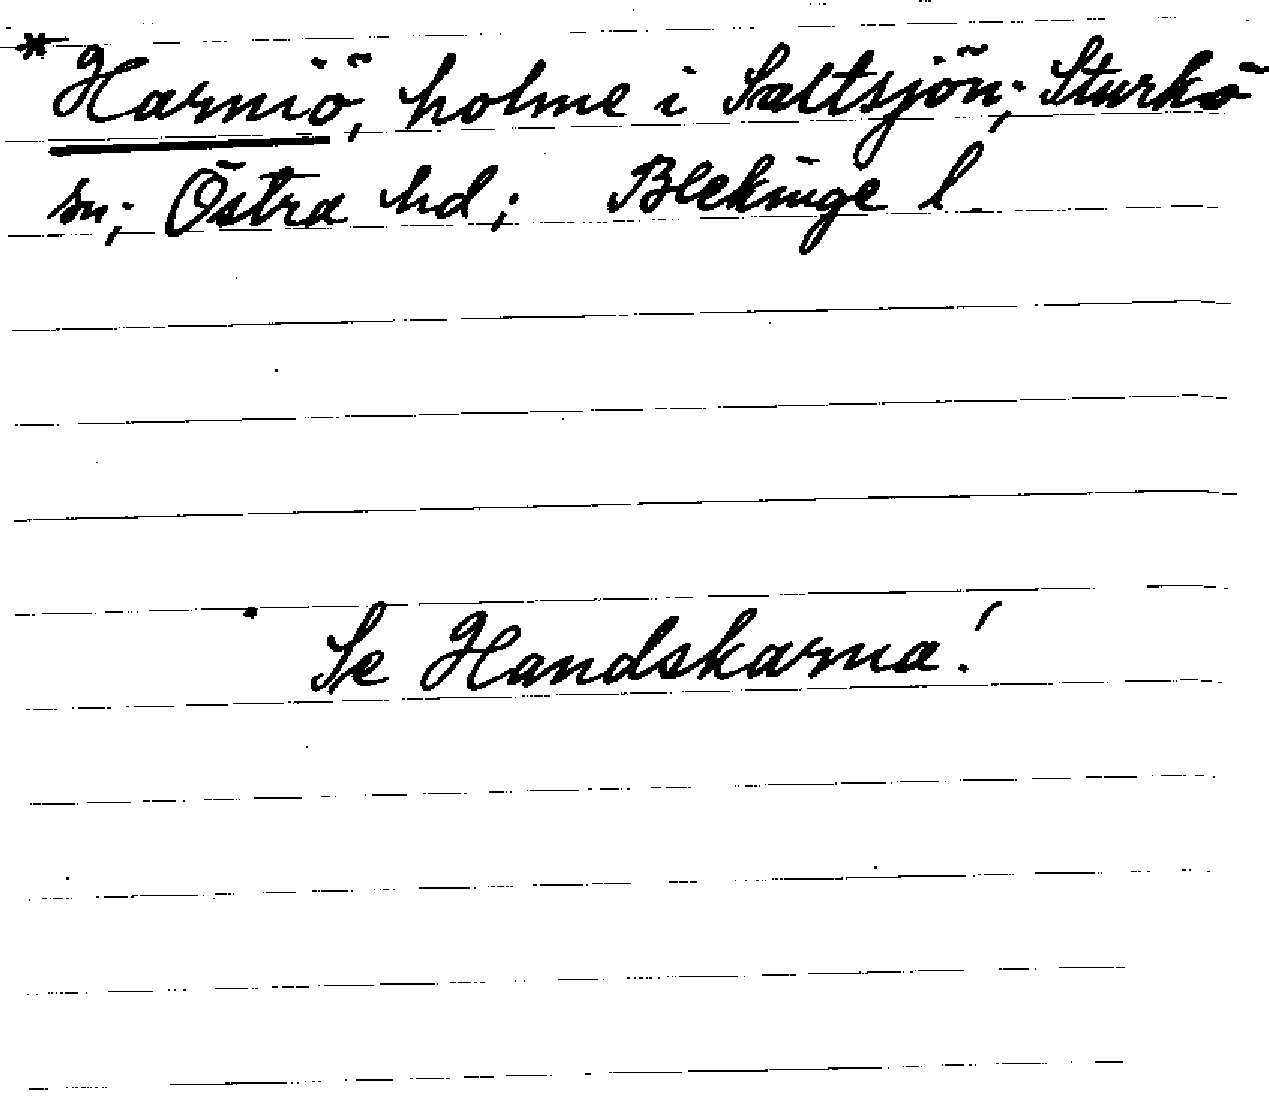 *Harniö, holme i Saltsjön; Sturkö
sn; Östra hd; Blekinge l
Se Handskarna!